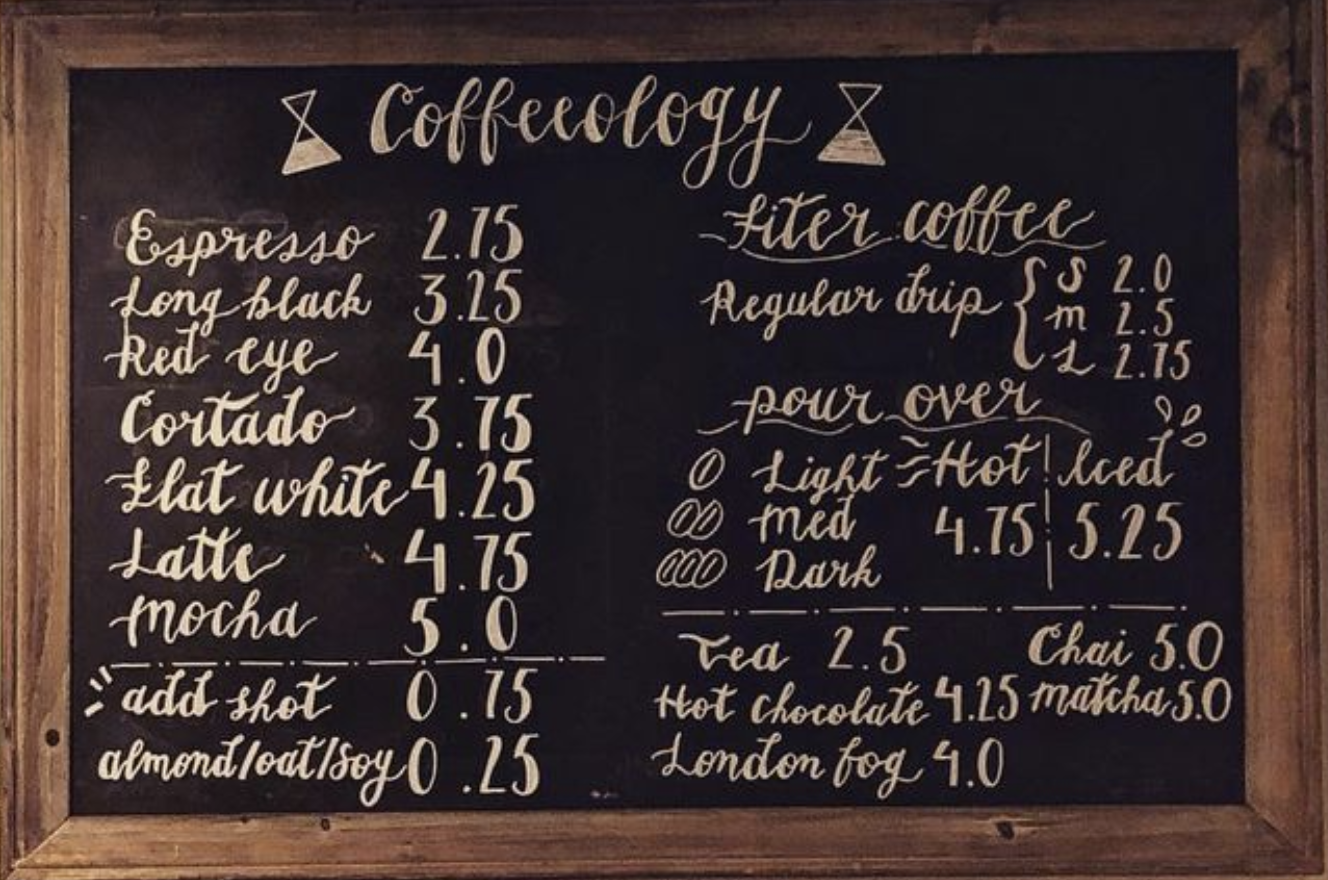 Coffeeology
Espresso 2.75
Long black 3.25
Red eye 4.0
Cortado 3.75
Flat white 4.25
Latte 4.75
Mocha 5.0
add shot 0.75
almond/oat/soy 0.25
Fiter coffee
Regular drip { S 2.0
m 2.5
L 2.75
pour over
Light Hot Iced
Med 4.75 5.25
Dark
Tea 2.5 Chai 5.0
Hot chocolate 4.25 matcha 5.0
London fog 4.0